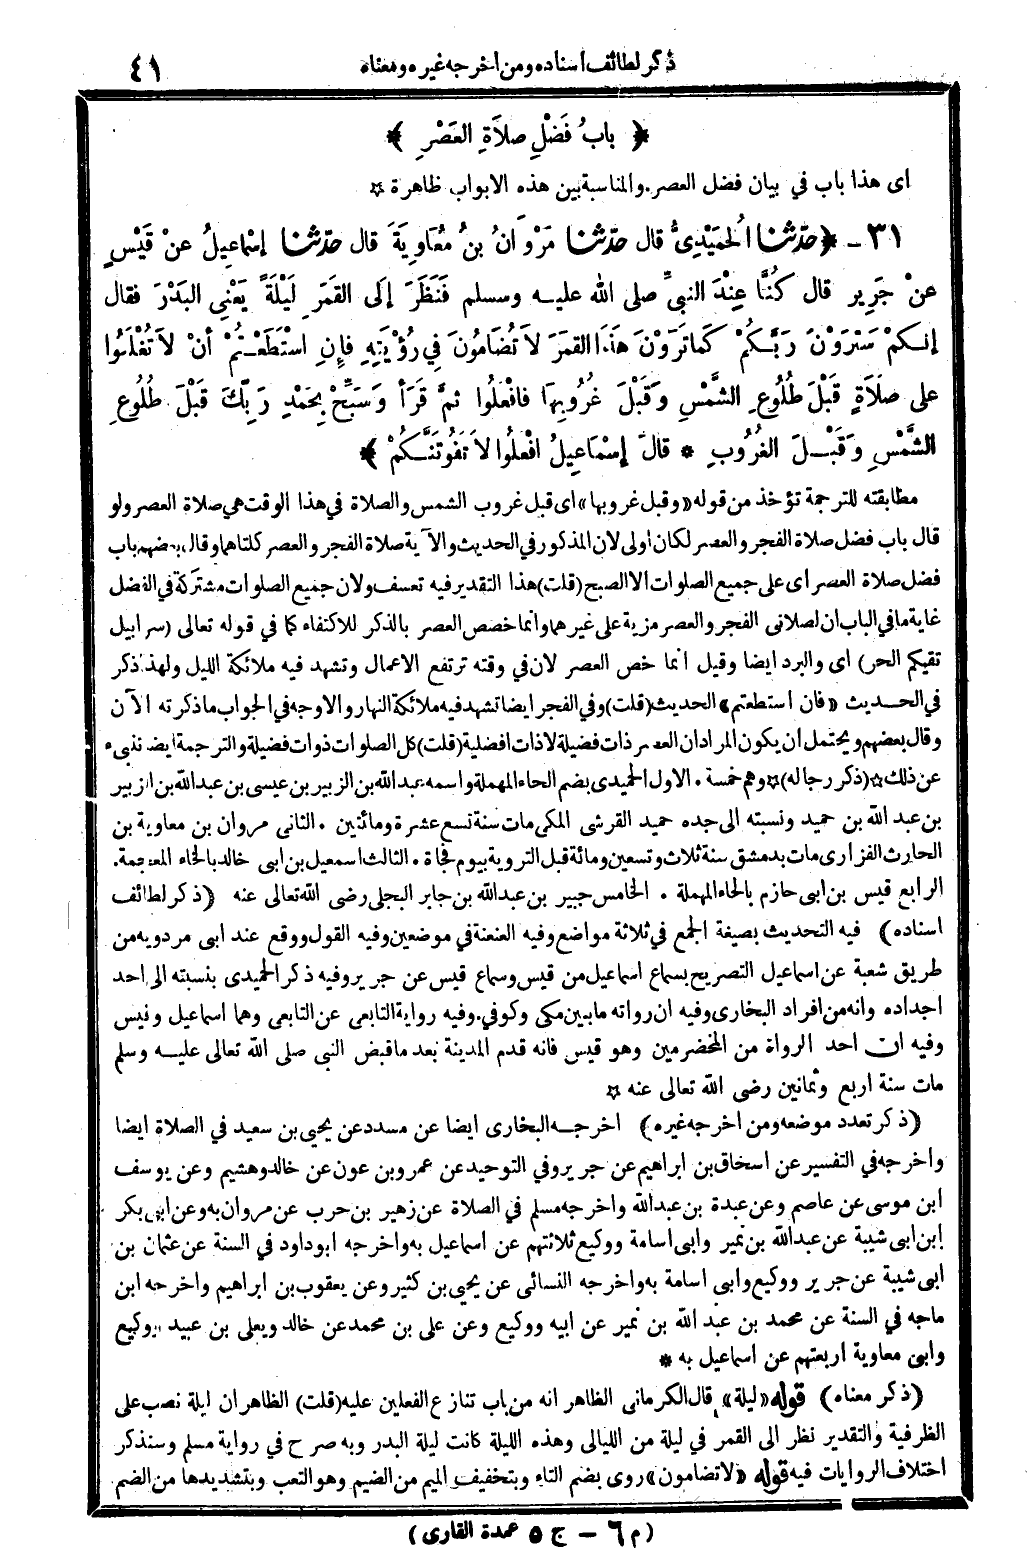 ذكر لطائف اسناده ومن اخرجه غيره ومعناه
٤١
﴿ بابُ فَضْلِ صلاَةِ العَصْرِ ﴾
اى هذا باب في بيان فضل العصر. والمناسبة بين هذه الابواب ظاهرة ☆
٣١ - ﴿ حدّثنا الحُمَيْدِىُّ قال حدّثنا مَرْوَانُ بنُ مُعَاوِيَةَ قال حدّثنا إسْماعِيلُ عنْ قَيْسٍ
عنْ جَرِيرٍ قال كُنَّا عِنْدَ النبيِّ صلى الله عليه وسلم فَنَظَرَ إلَى القمَرِ لَيْلَةً يَعْنِي البَدْرَ فقال
إنكمْ سَتَرَوْنَ رَبَّكُمْ كَمَا تَرَوْنَ هذَا القمَرَ لاَ تُضَامُونَ فِي رُؤْيَتِهِ فإِنِ اسْتَطَعْتُمْ أنْ لاَ تُغْلَبُوا
على صَلاَةٍ قَبْلَ طُلُوعِ الشَّمْسِ وَقَبْلَ غُرُوبِهَا فافْعَلُوا ثمَّ قَرَأَ وَسَبِّحْ بِحَمْدِ رَبِّكَ قَبْلَ طُلُوعِ
الشَّمْسِ وَقَبْلَ الغُرُوبِ * قالَ إسْمَاعِيلُ افْعلُوا لاَ تَفُوتَنَّكُمْ ﴾
مطابقته للترجمة تؤخذ من قوله «وقبل غروبها» اى قبل غروب الشمس والصلاة في هذا الوقت هي صلاة العصر ولو
قال باب فضل صلاة الفجر والعصر لكان اولى لان المذكور في الحديث والآية صلاة الفجر والعصر كلتاهما وقال بعضهم باب
فضل صلاة العصر اى على جميع الصلوات الا الصبح (قلت) هذا التقدير فيه تعسف ولان جميع الصلوات مشتركة في الفضل
غاية ما في الباب ان لصلاتى الفجر والعصر مزية على غيرهما وانما خصص العصر بالذكر للاكتفاء كما في قوله تعالى (سرابيل
تقيكم الحر) اى والبرد ايضا وقيل انما خص العصر لان في وقته ترتفع الاعمال وتشهد فيه ملائكة الليل ولهذا ذكر
في الحديث «فان استطعتم» الحديث (قلت) وفي الفجر ايضا تشهد فيه ملائكة النهار والاوجه في الجواب ما ذكرته الآن
وقال بعضهم ويحتمل ان يكون المراد ان العصر ذات فضيلة لا ذات افضلية (قلت) كل الصلوات ذوات فضيلة والترجمة ايضا تنبىء
عن ذلك ☆ (ذكر رجاله) ☆ وهم خمسة . الاول الحميدى بضم الحاء المهملة واسمه عبد الله بن الزبير بن عيسى بن عبد الله بن الزبير
بن عبد الله بن حميد ونسبته الى جده حميد القرشى المكى مات سنة تسع عشرة ومائتين . الثانى مروان بن معاوية بن
الحارث الفزارى مات بدمشق سنة ثلاث وتسعين ومائة قبل التروية بيوم فجأة . الثالث اسمعيل بن ابى خالد بالخاء المعجمة.
الرابع قيس بن ابى حازم بالحاء المهملة . الخامس جبير بن عبد الله بن جابر البجلى رضى الله تعالى عنه (ذكر لطائف
اسناده) فيه التحديث بصيغة الجمع في ثلاثة مواضع وفيه العنعنة في موضعين وفيه القول ووقع عند ابى مردويه من
طريق شعبة عن اسماعيل التصريح بسماع اسماعيل من قيس وسماع قيس عن جرير وفيه ذكر الحميدى بنسبته الى احد
اجداده وانه من افراد البخارى وفيه ان رواته ما بين مكى وكوفي. وفيه رواية التابعى عن التابعى وهما اسماعيل وقيس
وفيه ان احد الرواة من المخضرمين وهو قيس فانه قدم المدينة بعد ما قبض النبي صلى الله تعالى عليه وسلم
مات سنة اربع وثمانين رضى الله تعالى عنه ☆
(ذكر تعدد موضعه ومن اخرجه غيره) اخرجه البخارى ايضا عن مسدد عن يحيى بن سعيد في الصلاة ايضا
واخرجه في التفسير عن اسحاق بن ابراهيم عن جرير وفي التوحيد عن عمرو بن عون عن خالد وهشيم وعن يوسف
ابن موسى عن عاصم وعن عبدة بن عبد الله واخرجه مسلم في الصلاة عن زهير بن حرب عن مروان به وعن ابى بكر
ابن ابى شيبة عن عبد الله بن نمير وابى اسامة ووكيع ثلاثتهم عن اسماعيل به واخرجه ابو داود في السنة عن عثمان بن
ابى شيبة عن جرير ووكيع وابى اسامة به واخرجه النسائى عن يحيى بن كثير وعن يعقوب بن ابراهيم واخرجه ابن
ماجه في السنة عن محمد بن عبد الله بن نمير عن ابيه ووكيع وعن على بن محمد عن خالد ويعلى بن عبيد ووكيع
وابى معاوية اربعتهم عن اسماعيل به *
(ذكر معناه) قوله «ليلة» قال الكرمانى الظاهر انه من باب تنازع الفعلين عليه (قلت) الظاهر ان ليلة نصب على
الظرفية والتقدير نظر الى القمر في ليلة من الليالى وهذه الليلة كانت ليلة البدر وبه صرح في رواية مسلم وسنذكر
اختلاف الروايات فيه قوله «لا تضامون» روى بضم التاء وبتخفيف الميم من الضيم وهو التعب وبتشديدها من الضم
(م ٦ - ج ٥ عمدة القارى)